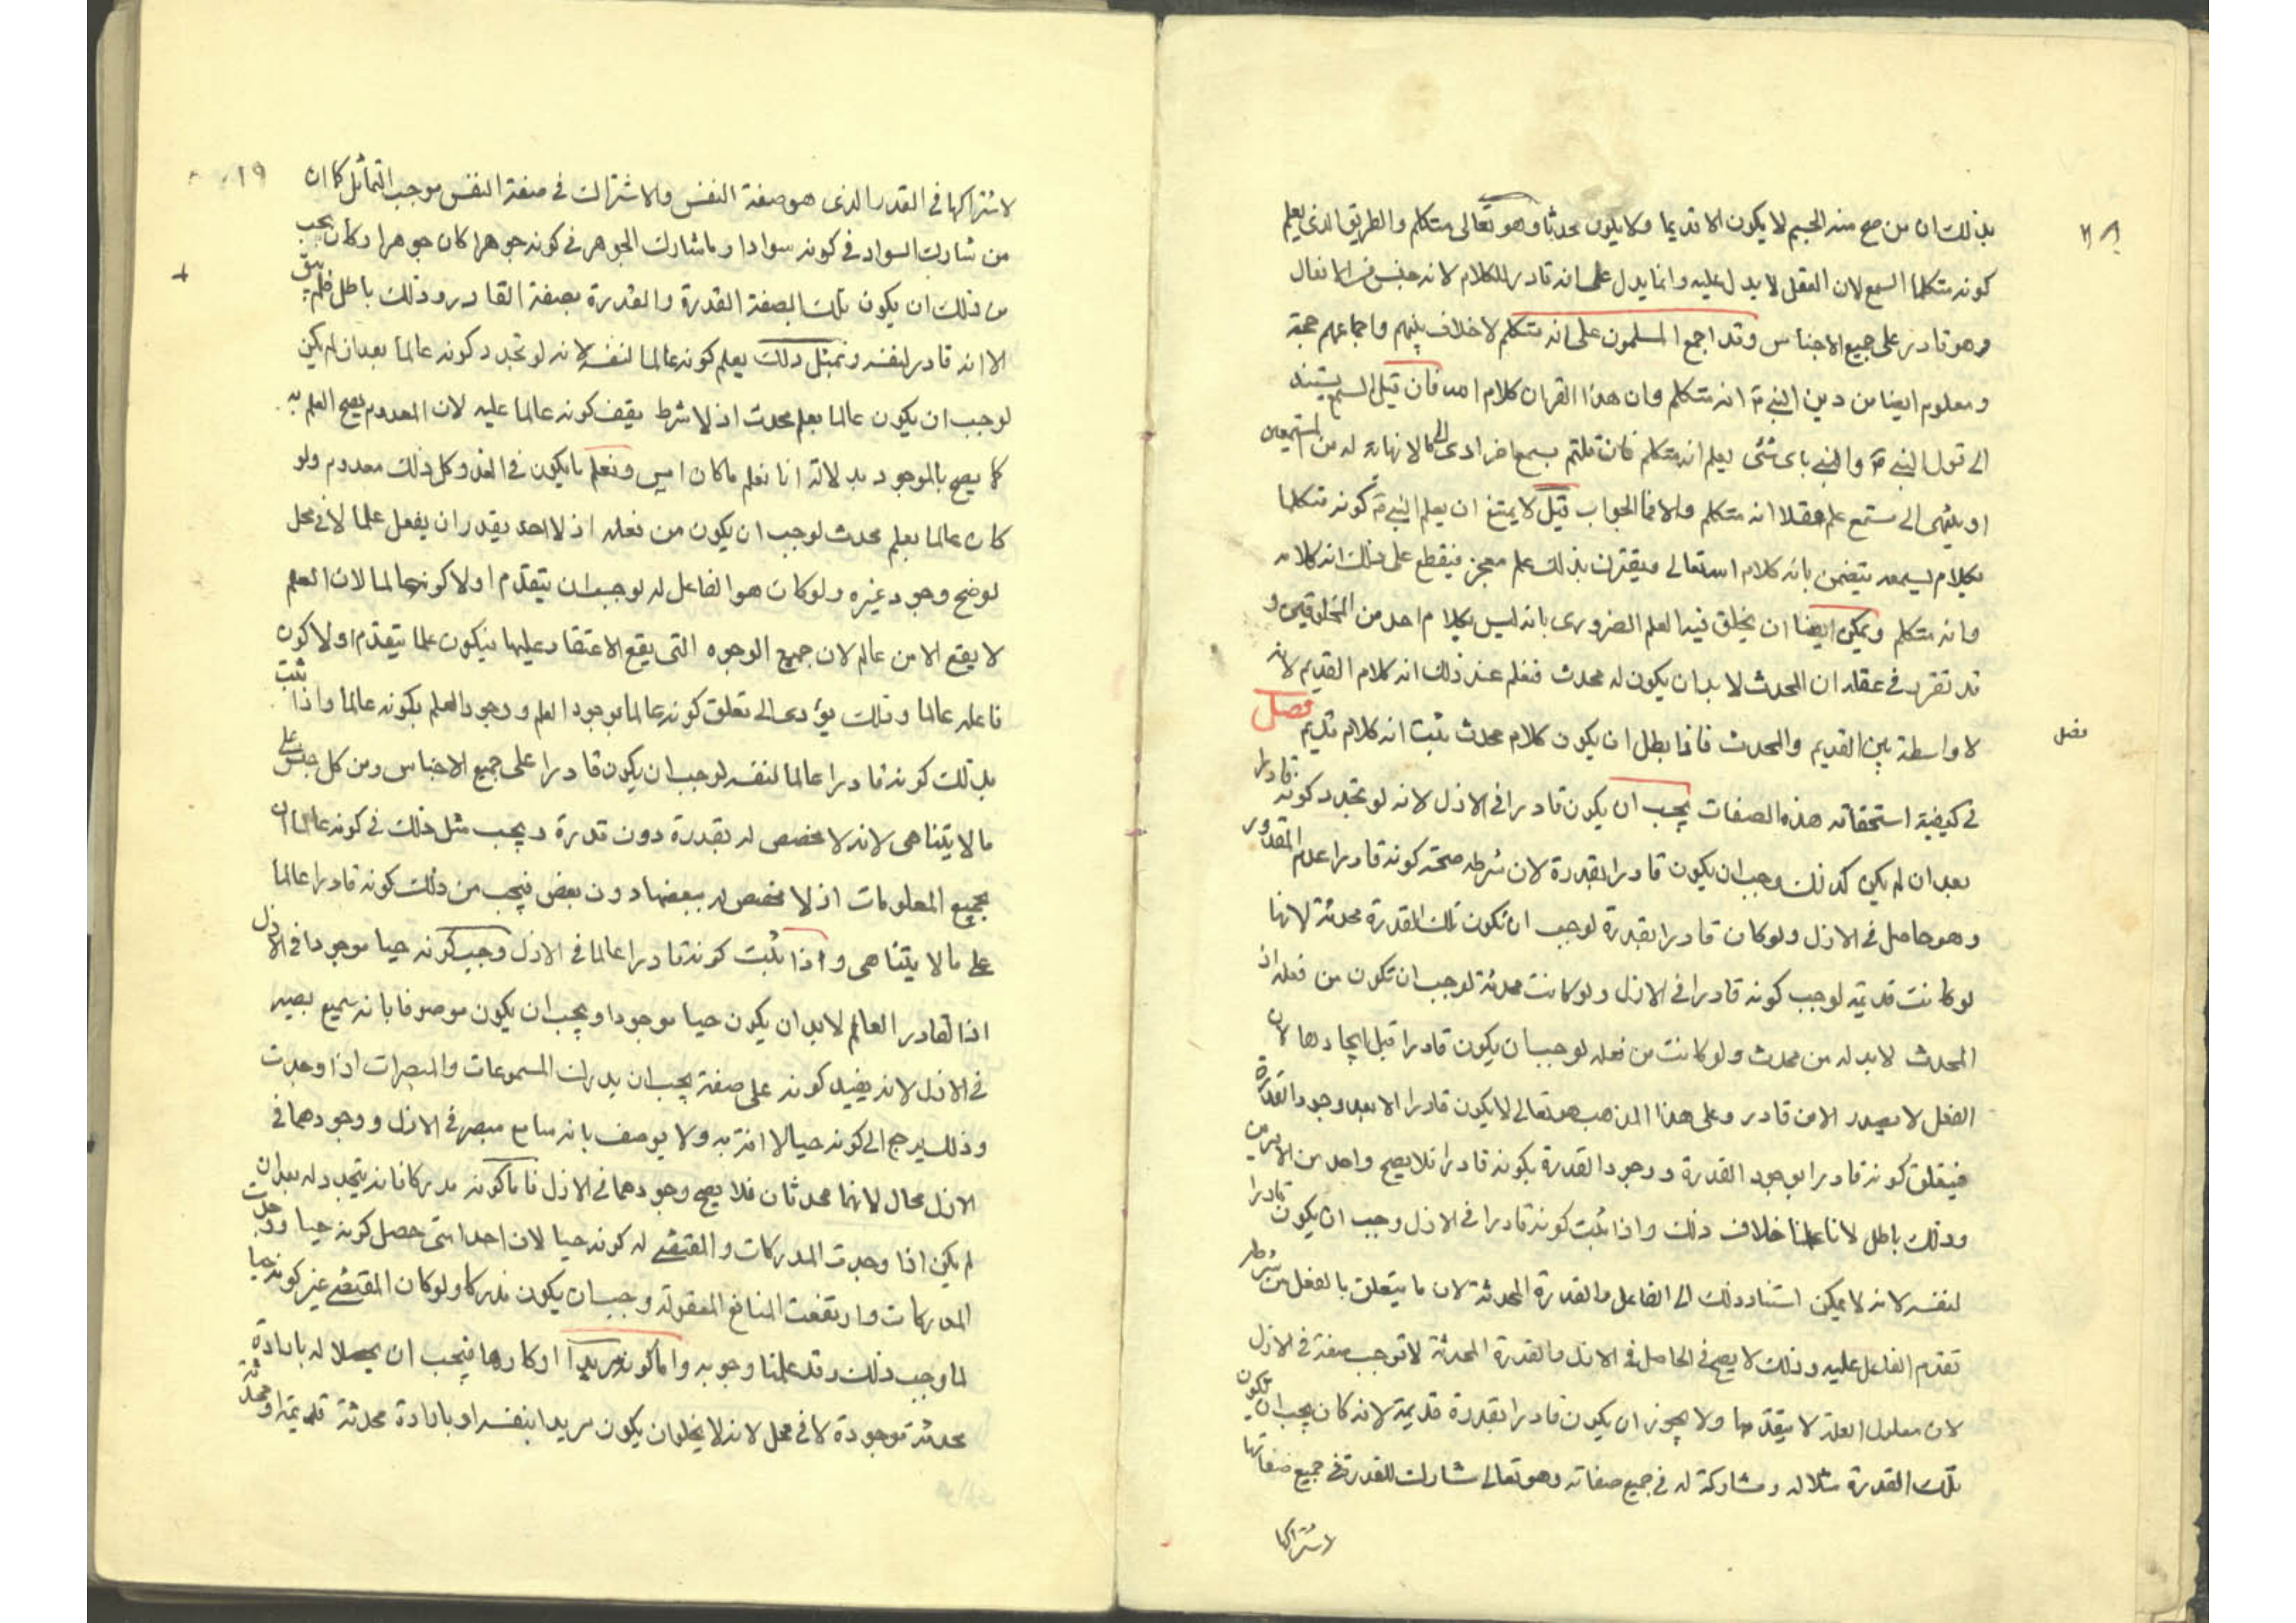 بذلك ان من صح منه الجسم لا يكون الا قديما ولا يكون محدثا وهو تعالى متكلم والطريق الذى يعلم
كونه متكلما السمع لان العقل لا يدل عليه وانما يدل على انه قادر للكلام لانه جنس من الافعال
وهو قادر على جميع الاجناس وقد اجمع المسلمون على انه متكلم لا خلاف بينهم واجماعهم حجة
ومعلوم ايضا من دين النبى انه متكلم وان هذا القران كلام الله فان قيل السمع يستند
الى قول النبى والنبى باى شئى يعلم انه متكلم فان قلتم بسمع اخر ادى الى مالا نهاية له من المستمعين
او ينتهى الى مستمع علم عقلا انه متكلم والا فما الجواب قيل لا يمتنع ان يعلم النبى كونه متكلما
بكلام يسمعه يتضمن بانه كلام الله تعالى ويقترن بذلك علم معجز فيقطع على ذلك انه كلامه
وانه متكلم ويمكن ايضا ان يخلق فيه العلم الضرورى بانه ليس بكلام احد من المخلوقين و
قد تقرر فى عقله ان المحدث لا بد ان يكون له محدث فنعلم عند ذلك انه كلام القديم لانه
لا واسطة بين القديم والمحدث فاذا بطل ان يكون كلام محدث ثبت انه كلام قديم فصل
فصل
فى كيفية استحقاقه هذه الصفات يجب ان يكون قادرا فى الازل لانه لو تجدد كونه قادرا
بعد ان لم يكن كذلك وجب ان يكون قادرا بقدرة لان شرطه صحة كونه قادرا عدم المقدور
وهو حاصل فى الازل ولو كان قادرا بقدرة لوجب ان تكون تلك القدرة محدثة لانها
لو كانت قديمة لوجب كونه قادرا فى الازل ولو كانت محدثة لوجب ان تكون من فعله اذ
المحدث لا بد له من محدث ولو كانت من فعله لوجب ان يكون قادرا قبل ايجادها لان
الفعل لا يصدر الا من قادر وعلى هذا المذهب هو تعالى لا يكون قادرا الا بعد وجود القدرة
فيتعلق كونه قادرا بوجود القدرة ووجود القدرة بكونه قادرا فلا يصح واحد من الامرين
وذلك باطل لانا علمنا خلاف ذلك واذا ثبت كونه قادرا فى الازل وجب ان يكون قادرا
لنفسه لانه لا يمكن استناد ذلك الى الفاعل والقدرة المحدثة لان ما يتعلق بالفعل من شرطه
تقدم الفاعل عليه وذلك لا يصح فى الحاصل فى الازل والقدرة المحدثة لا توجب صفة فى الازل
لان معلول العلة لا يتقدمها ولا يجوز ان يكون قادرا بقدرة قديمة لانه كان يجب ان تكون
تلك القدرة مثلا له ومشاركة له فى جميع صفاته وهو تعالى شارك للقدرة فى جميع صفاتها
لاشتراكها
١٩
لاشتراكها فى القدم الذى هو صفة النفس والاشتراك فى صفة النفس موجب التماثل كما ان
من شارك السواد فى كونه سوادا وما شارك الجوهر فى كونه جوهرا كان جوهرا وكان يجب
من ذلك ان يكون تلك بصفة القدرة والقدرة بصفة القادر وذلك باطل فلم يبق
الا انه قادر لنفسه وبمثل ذلك يعلم كونه عالما لنفسه لانه لو تجدد كونه عالما بعد ان لم يكن
لوجب ان يكون عالما بعلم محدث اذ لا شرط يقف كونه عالما عليه لان المعدوم يصح العلم به
كما يصح بالموجود بدلالة انا نعلم ما كان امس ونعلم ما يكون فى الغد وكل ذلك معدوم ولو
كان عالما بعلم محدث لوجب ان يكون من فعله اذ لا احد يقدر ان يفعل علما لا فى محل
لو ضح وجود غيره ولو كان هو الفاعل له لوجب ان يتقدم اولا كونه عالما لان العلم
لا يقع الا من عالم لان جميع الوجوه التى يقع الاعتقاد عليها فيكون علما يتقدم اولا كون
فاعله عالما وذلك يؤدى الى تعلق كونه عالما بوجود العلم ووجود العلم بكونه عالما واذا ثبت
بذلك كونه قادرا عالما لنفسه لوجب ان يكون قادرا على جميع الاجناس ومن كل جنس على
ما لا يتناهى لانه لا مخصص له بقدرة دون قدرة ويجب مثل ذلك فى كونه عالما ان
بجميع المعلومات اذ لا مخصص له ببعضها دون بعض فيجب من ذلك كونه قادرا عالما
على ما لا يتناهى واذا ثبت كونه قادرا عالما فى الازل وجب كونه حيا موجودا فى الازل
اذ القادر العالم لا بد ان يكون حيا موجودا ويجب ان يكون موصوفا بانه سميع بصير
فى الازل لانه يفيد كونه على صفة يجب ان يدرك المسموعات والمبصرات اذا وجدت
وذلك يرجع الى كونه حيا لا افة به ولا يوصف بانه سامع مبصر فى الازل ووجودهما فى
الازل محال لانهما محدثان فلا يصح وجودهما فى الازل فاما كونه مدركا فانه يتجدد له بعد ان
لم يكن اذا وجدت المدركات والمقتضى له كونه حيا لان احدا متى حصل كونه حيا ووجدت
المدركات وارتفعت المنافع المعقولة وجب ان يكون مدركا ولو كان المقتضى غير كونه حيا
لما وجب ذلك وقد علمنا وجوبه واما كونه مريدا او كارها فيجب ان يحصلا له بارادة
محدثة موجودة لا فى محل لانه لا يخلو ان يكون مريدا بنفسه او بارادة محدثة قديمة او محدثة